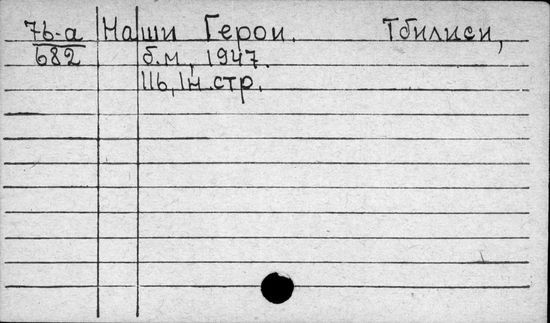 76-а Наши Герои. Тбилиси,
682 б.м, 1947.
116, 1н. стр.